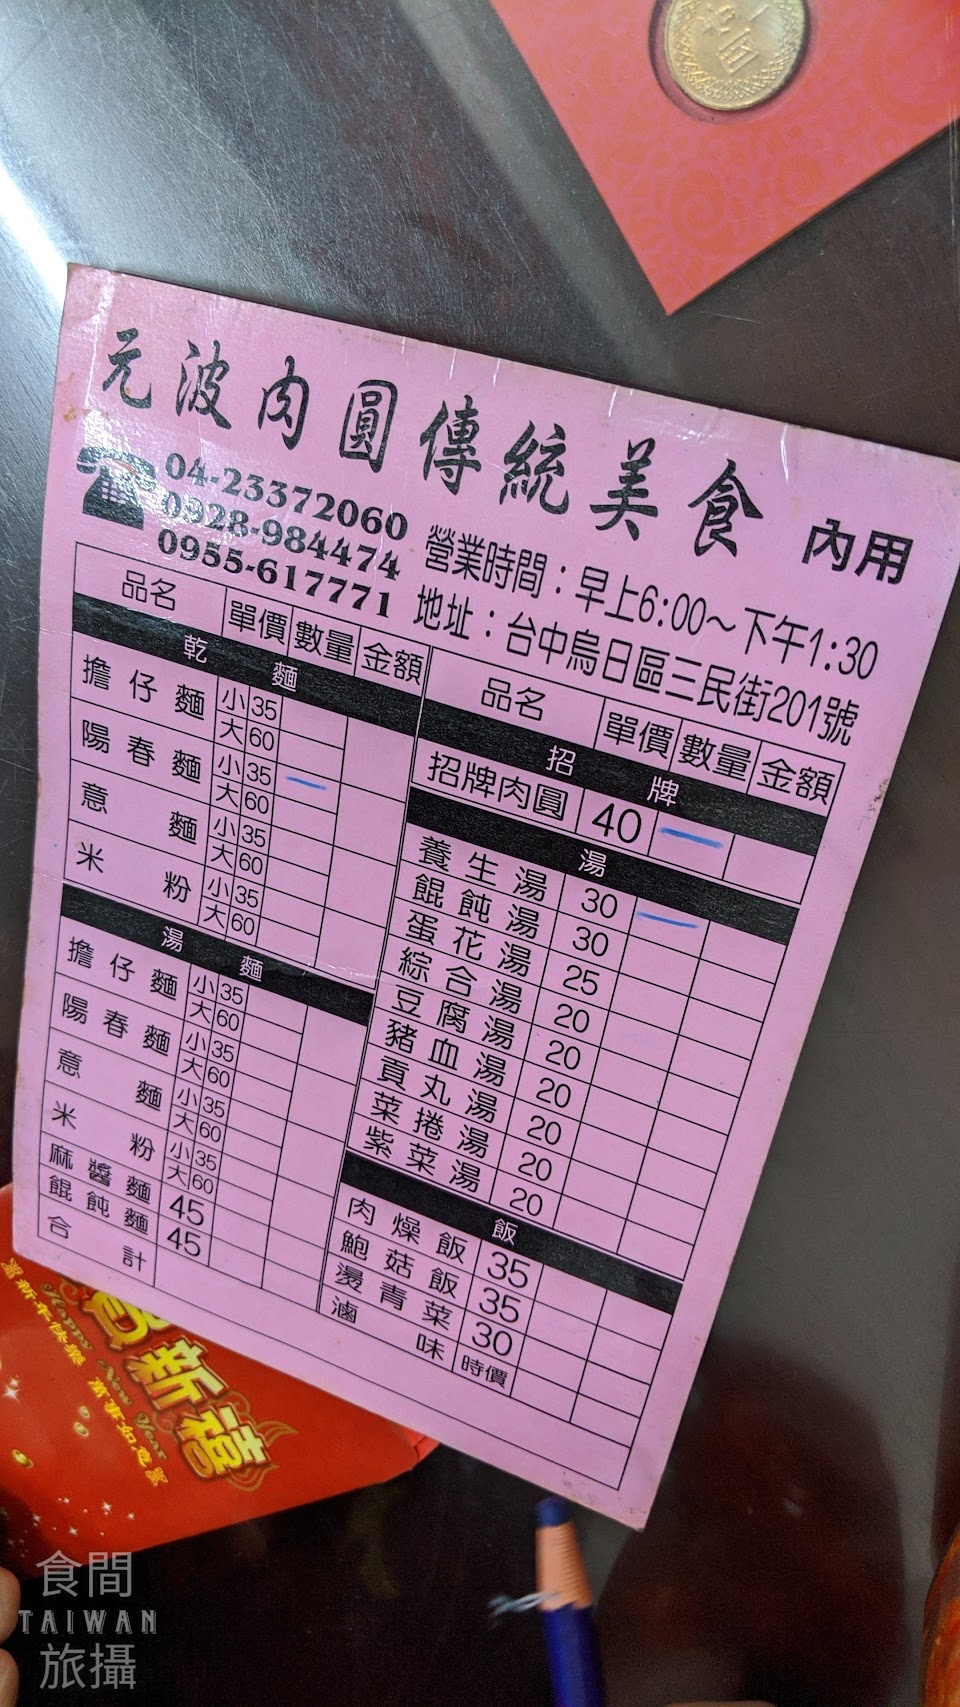 元波肉圓傳統美食 內用
04-23372060
0928-984474
0955-617771
營業時間：早上6:00～下午1:30
地址：台中烏日區三民街201號
品名 單價 數量 金額
乾麵
擔仔麵 小 35
大 60
陽春麵 小 35
大 60
意麵 小 35
大 60
米粉 小 35
大 60
湯麵
擔仔麵 小 35
大 60
陽春麵 小 35
大 60
意麵 小 35
大 60
米粉 小 35
大 60
麻醬麵 45
餛飩麵 45
合計
品名 單價 數量 金額
招牌
招牌肉圓 40
湯
養生湯 30
餛飩湯 30
蛋花湯 25
綜合湯 20
豆腐湯 20
豬血湯 20
貢丸湯 20
菜捲湯 20
紫菜湯 20
飯
肉燥飯 35
鮑菇飯 35
燙青菜 30
滷味 時價
賀新禧
Happy New Year
新年快樂 萬事如意
食間
TAIWAN
旅攝